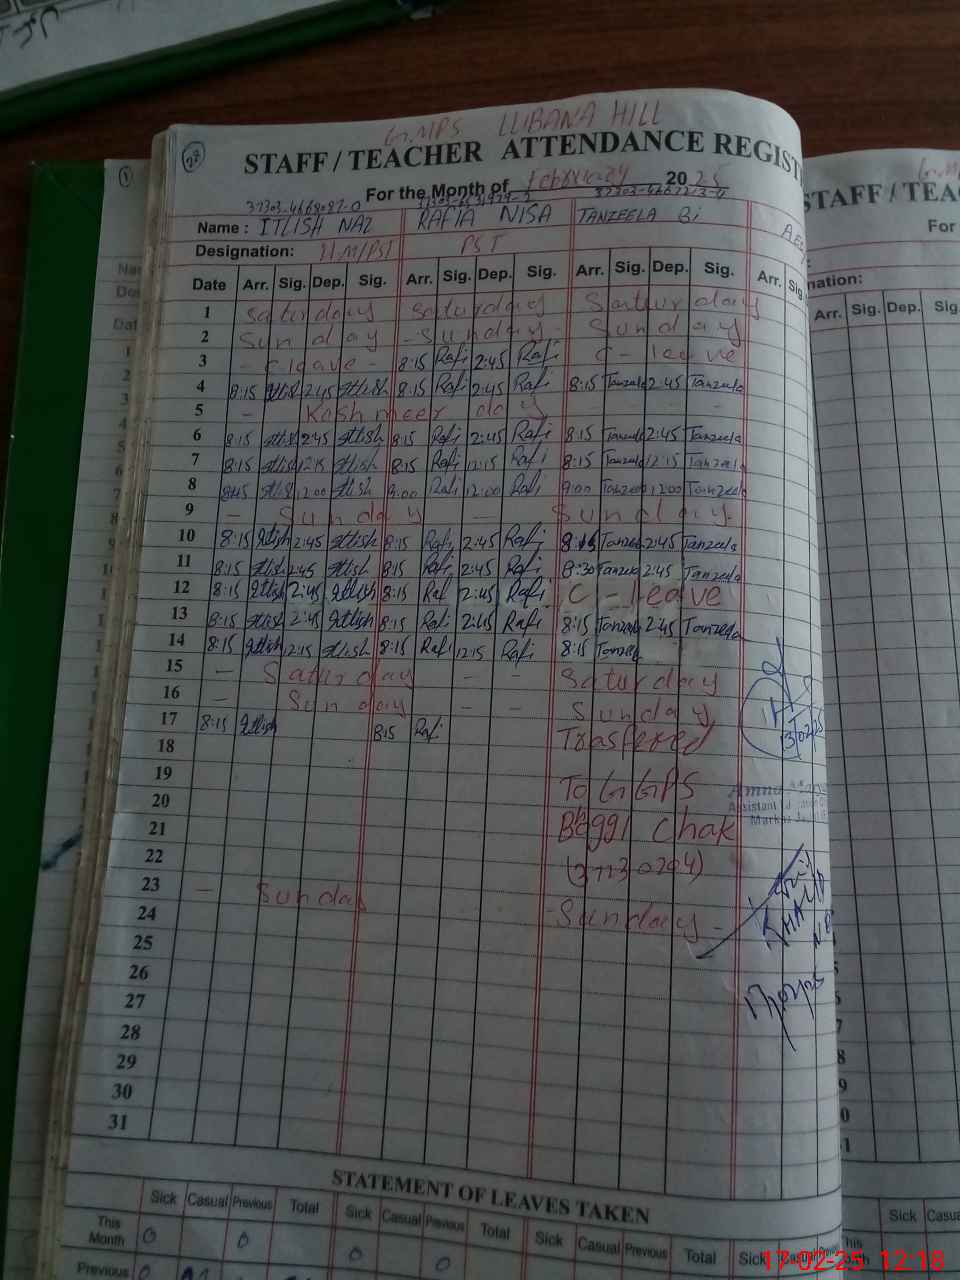 28
G.MPS LUBANA HILL
STAFF / TEACHER ATTENDANCE
For the Month of February 2025
37303-4668087-0
Name : ITLISH NAZ RAFIA NISA TANZEELA Bi
Designation: PST
Date Arr. Sig. Dep. Sig. Arr. Sig. Dep. Sig. Arr. Sig. Dep. Sig. Arr. Sig.
1 Saturday Saturday Saturday
2 Sunday - Sunday - Sunday
3 - C leave - 8:15 Rafi 2:45 Rafi C - leave
4 8:15 Itlish 2:45 Itlish 8:15 Rafi 2:45 Rafi 8:15 Tanzeela 2:45 Tanzeela
5 - Kashmeer day
6 8:15 Itlish 2:45 Itlish 8:15 Rafi 2:45 Rafi 8:15 Tanzeela 2:45 Tanzeela
7 8:15 Itlish 12:15 Itlish 8:15 Rafi 12:15 Rafi 8:15 Tanzeela 12:15 Tanzeela
8 8:45 Itlish 12:00 Itlish 9:00 Rafi 12:00 Rafi 9:00 Tanzeela 12:00 Tanzeela
9 - Sunday - Sunday
10 8:15 Itlish 2:45 Itlish 8:15 Rafi 2:45 Rafi 8:15 Tanzee 2:45 Tanzeela
11 8:15 Itlish 2:45 Itlish 8:15 Rafi 2:45 Rafi 8:30 Tanzee 2:45 Tanzeela
12 8:15 Itlish 2:45 Itlish 8:15 Raf 2:45 Rafi C - leave
13 8:15 Itlish 2:45 Itlish 8:15 Rafi 2:45 Rafi 8:15 Tanzeela 2:45 Tanzeela
14 8:15 Itlish 12:15 Itlish 8:15 Rafi 12:15 Rafi 8:15 Tanzee
15 - Saturday - - Saturday
16 - Sunday - - Sunday
17 8:15 Itlish 8:15 Rafi Trasfered
18
19 To G GPS
20
21 Beggi Chak
22 (37130294)
23 - Sunday
24 - Sunday -
25
26
27
28
29
30
31
13/02/25
Amna
Assistant
STATEMENT OF LEAVES TAKEN
Sick Casual Previous Total Sick Casual Previous Total Sick Casual Previous Total Sick
This Month 0 0 0 0
Previous
STAFF / TEA
For
nation:
Arr. Sig. Dep. Sig.
Sick
17-02-25 12:18